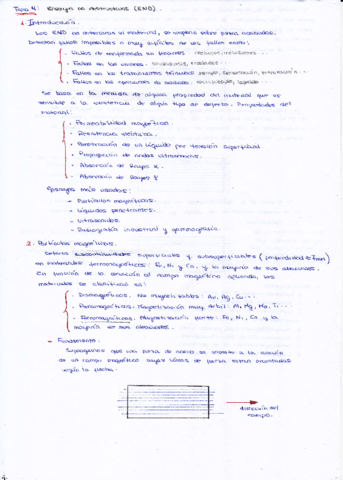 Tema 4: Ensayos no destructivos (END).
1. Introducción.
Los END no deterioran el material, se emplean sobre piezas acabadas.
Detectan piezas imposibles o muy difíciles de ver. Fallos en:
- Fallos de conformado en lingotes:
- Fallos en las uniones:
- Fallos en los tratamientos térmicos:
- Fallos en las operaciones de acabado:
Se basa en la medida de alguna propiedad del material que es
sensible a la existencia de algún tipo de defecto. Propiedades del
material:
- Permeabilidad magnética.
- Resistencia eléctrica.
- Penetración de un líquido por tensión superficial
- Propagación de ondas ultrasonoras.
- Absorción de Rayos X.
- Absorción de Rayos γ.
Ensayos más usados:
- Partículas magnéticas.
- Líquidos penetrantes.
- Ultrasonidos.
- Radiografía industrial y gammagrafía.
2. Partículas magnéticas.
Detecta superficiales y subsuperficiales (profundidad
en materiales ferromagnéticos: Fe, Ni y Co, y la mayoría de sus aleaciones.
En función de la reacción al campo magnético aplicado, los
materiales se clasifican en:
- Diamagnéticos. No magnetizables: Au, Ag, Cu...
- Paramagnéticos. Magnetización muy débil: Al, Mg, Mo, Ti...
- Ferromagnéticos. Magnetización fuerte: Fe, Ni, Co y la
mayoría de sus aleaciones.
- Fundamento.
Supongamos que una pieza de acero se somete a la acción
de un campo magnético cuyas líneas de fuerza están orientadas
según la flecha.
dirección del
campo.